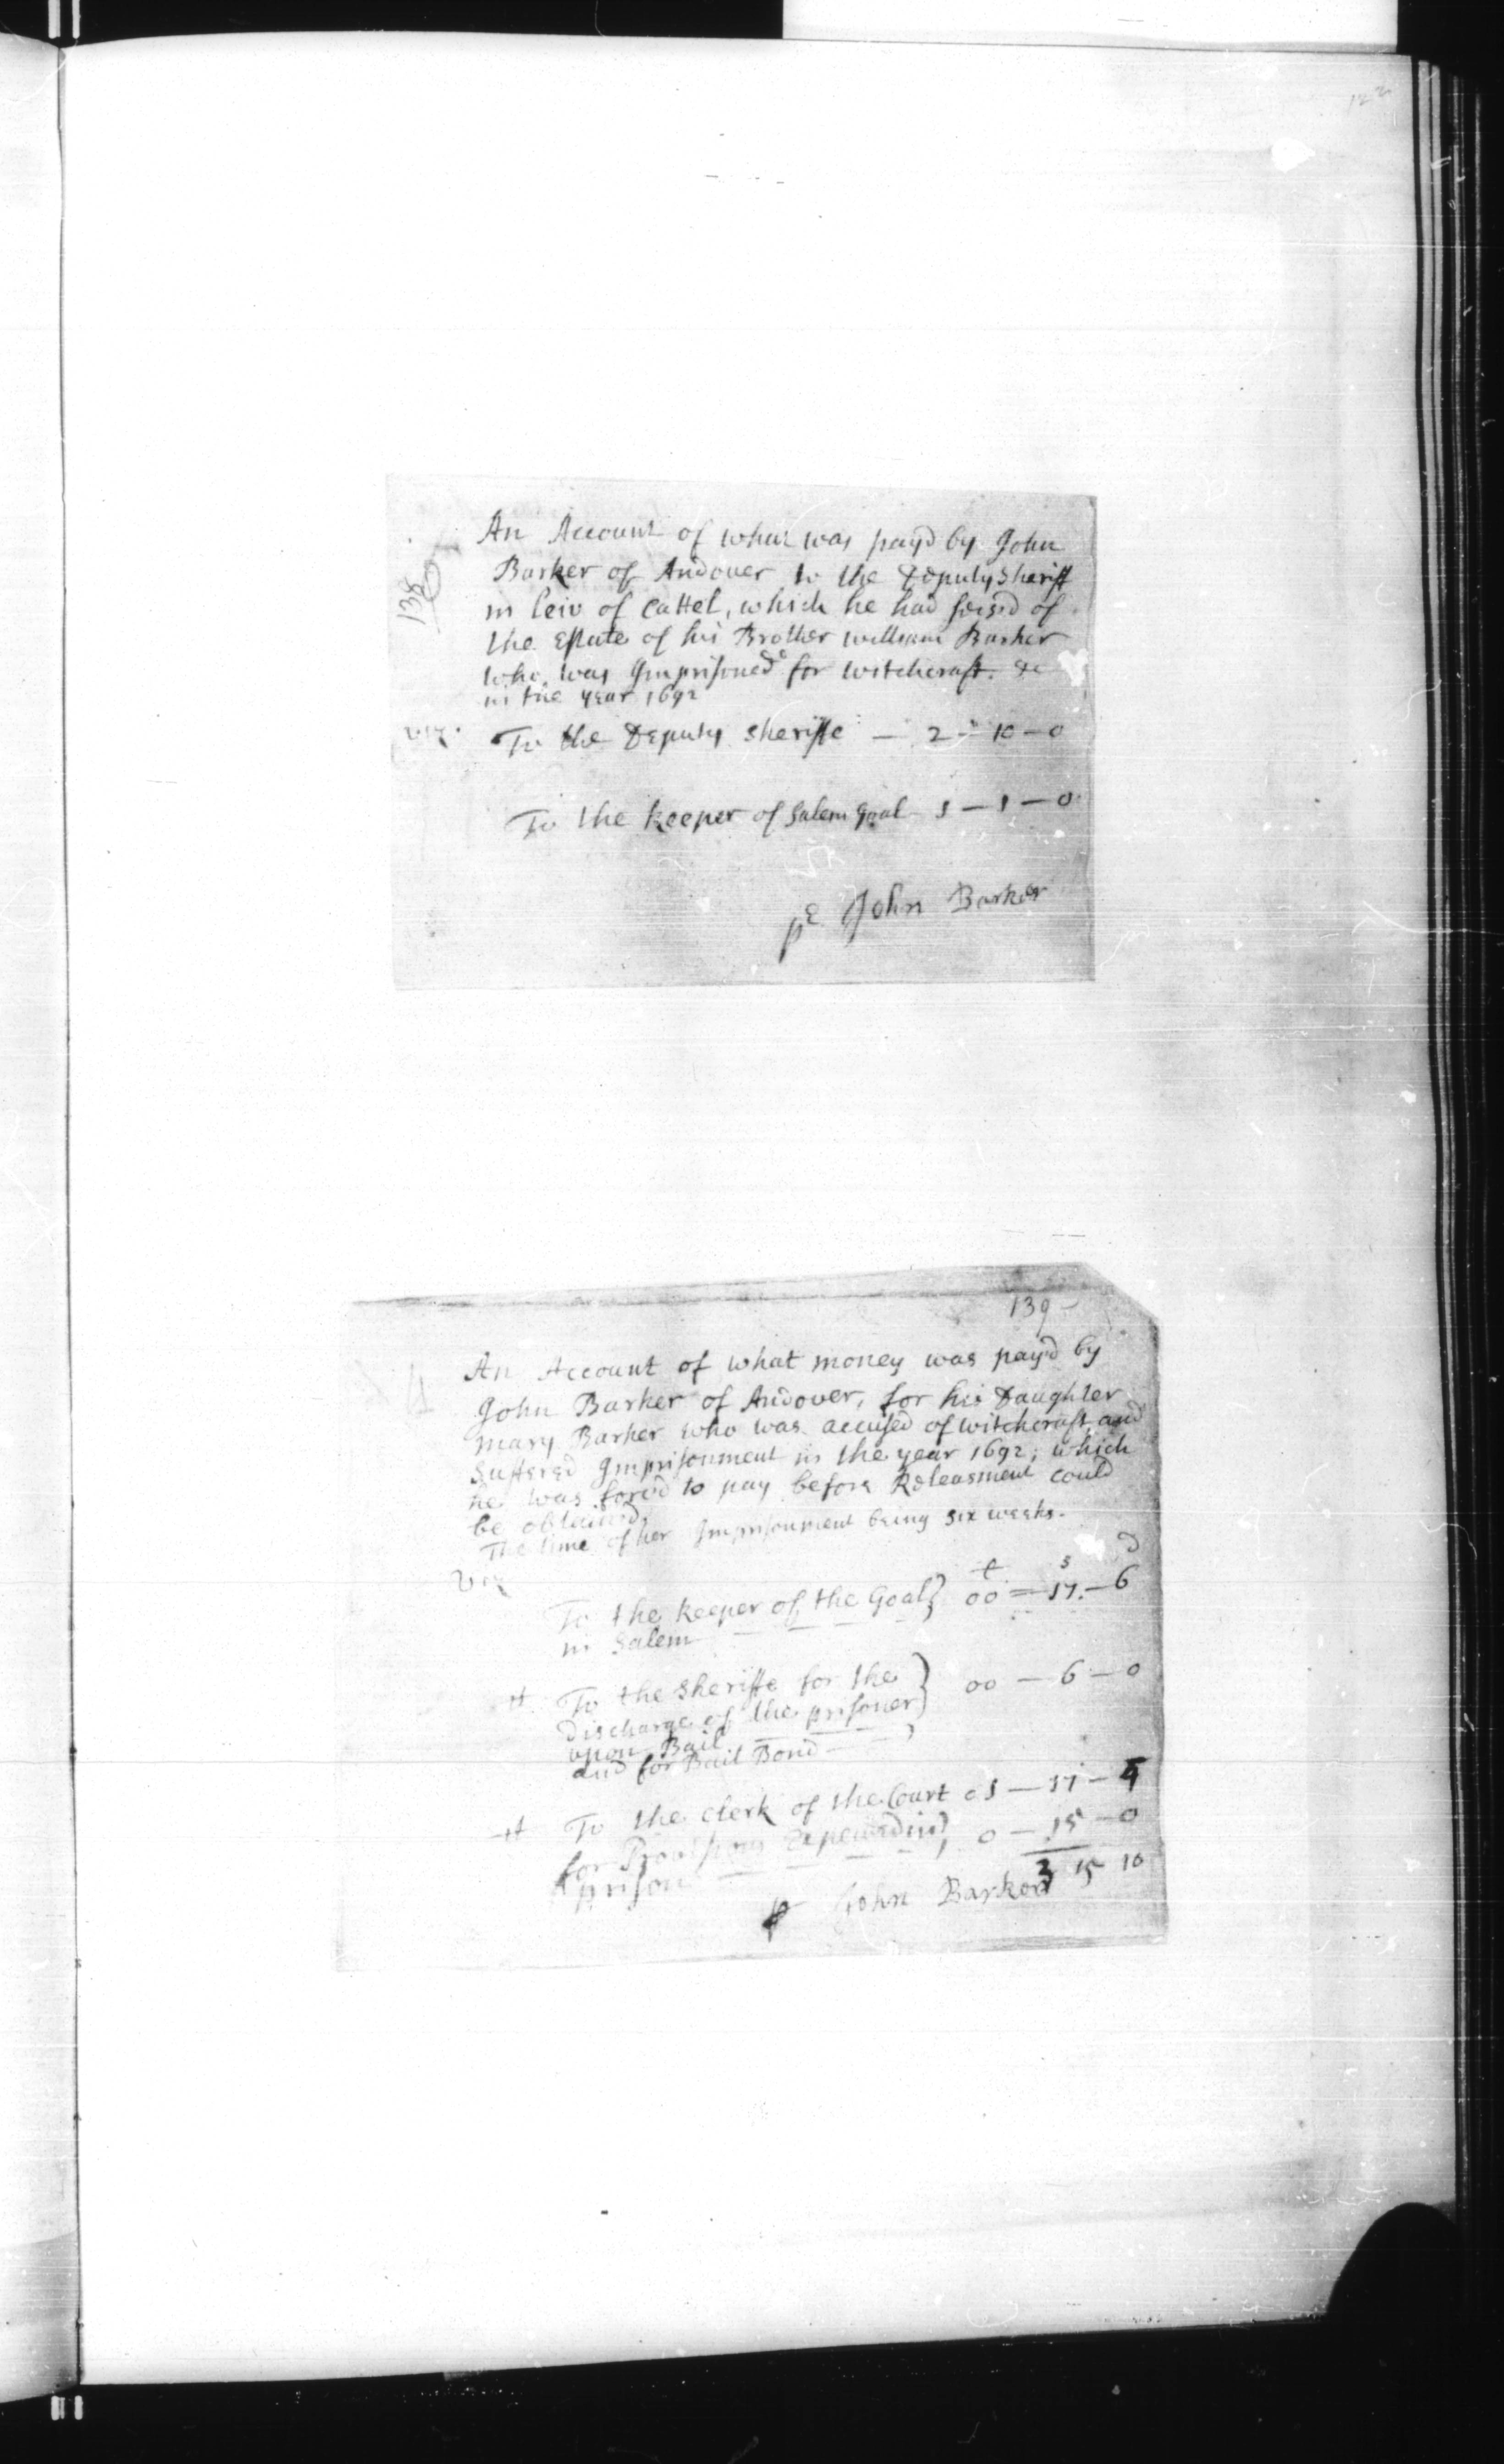 122
138
An Account of what was payd by John
Barker of Andover to the Deputy Sheriff
in leiu of Cattel, which he had seised of
the Estate of his Brother william Barker
who was Imprisoned for witchcraft. &c
in the year 1692
viz.
To the Deputy Sheriffe — 2 - 10 - 0
To the keeper of Salem Goal 1 — 1 — 0
pr John Barker
139
An Account of what money was payd by
John Barker of Andover, for his Daughter
Mary Barker who was accused of witchcraft, and
Suffered Imprisonment in the year 1692, which
he was forc'd to pay before Releasment could
be obtained.
The time of her Imprisonment being six weeks.
viz
£ s d
To the keeper of the Goal} 00 = 17. — 6
in Salem
It To the Sheriffe for the } 00 — 6 — 0
discharge of the prisoner
upon Bail
and for Bail Bond
It To the Clerk of the Court 01 — 17 — 4
for Provisions Expended in} 0 — 15 — 0
prison
3 15 10
p John Barker